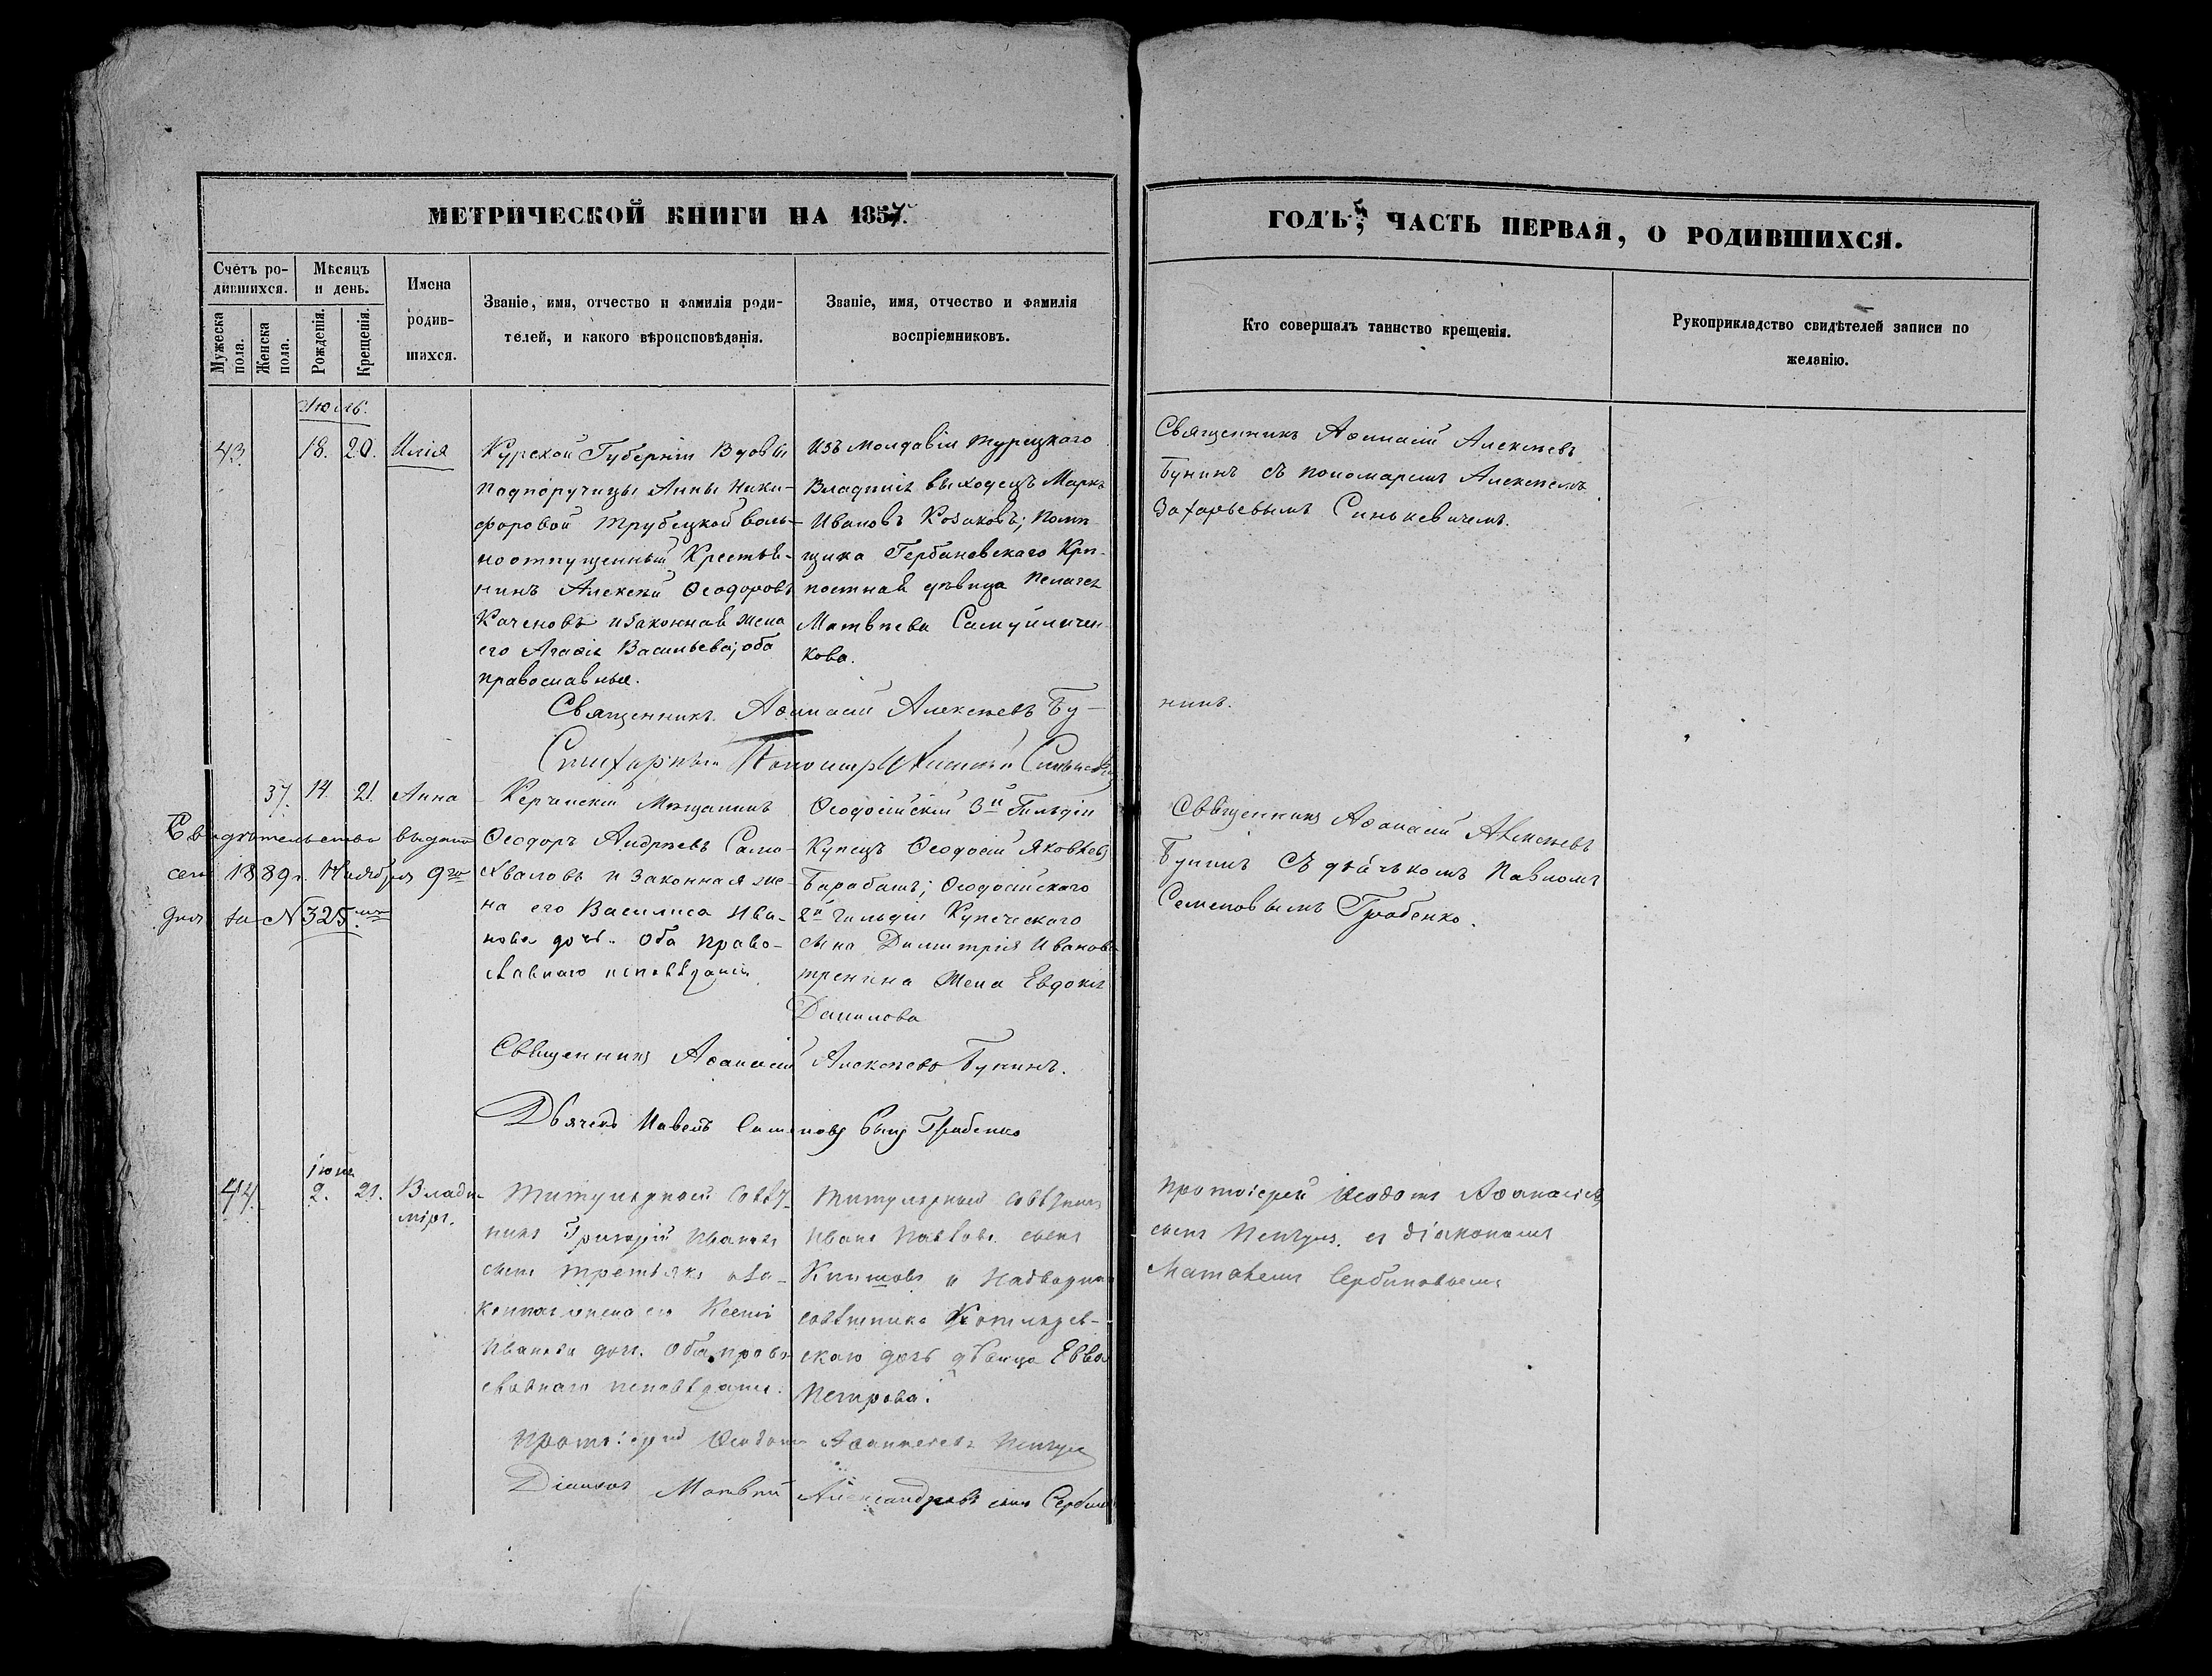 МЕТРИЧЕСКОЙ КНИГИ НА 1857.
ГОДЪ, ЧАСТЬ ПЕРВАЯ, О РОДИВШИХСЯ.
Счетъ ро-
дившихся.
Мѣсяцъ
и день.
Имена
родив-
шихся.
Званіе, имя, отчество и фамилія роди-
телей, и какого вѣроисповѣданія.
Званіе, имя, отчество и фамилія
воспріемниковъ.
Мужеска
пола.
Женска
пола.
Рожденія.
Крещенія.
Кто совершалъ таинство крещенія.
Рукоприкладство свидѣтелей записи по
желанію.
Июль.
43. 18. 20. Илія
Курской Губерніи Вдовы
подпоручицы Анны Ники-
форовой Трубецкой воль-
ноотпущенный Крестья-
нинъ Алексѣй Ѳеодоровъ
Каченовъ и законная жена
его Агафія Васильева; оба
православные.
Изъ Молдавіи Турецкаго
Владѣнія выходецъ Маркъ
Ивановъ Козаковъ; Помѣ-
щика Гербановскаго Крѣ-
постная дѣвица Пелагея
Матвѣева Самуиличен-
кова.
Священникъ Аѳанасій Алексѣевъ
Бунинъ съ пономаремъ Алексѣемъ
Захарьевымъ Синькевичемъ.
Священникъ Аѳанасій Алексѣевъ Бу-
нинъ.
Стихарный Пономарь Алексѣй
37. 14. 21. Анна
Свидѣтельство выдано
сего 1889 г. Ноября 9го
дня за N 325.
Керчинскій Мѣщанинъ
Ѳеодоръ Андрѣевъ Само-
хваловъ и законная же-
на его Василиса Ива-
нова дочь. Оба право-
славнаго исповѣданія
Ѳеодосійскій 3й Гильдіи
Купецъ Ѳеодосій Яковлевъ
Барабашъ; Ѳеодосійскаго
2й Гильдіи Купеческаго
сына Димитрія Иванова
Тренина Жена Евдокія
Данилова
Священникъ Аѳанасій Алексѣевъ
Бунинъ съ дьячькомъ Павломъ
Семеновымъ Грабенко.
Священникъ Аѳанасій Алексѣевъ Бунинъ.
Дьячекъ Павелъ Семеновъ сынъ Грабенко
44. 2. 21. Влади-
міръ.
Титулярный Совѣт-
никъ Григорій Ивановъ
сынъ Третьякъ и за-
конная жена его Ксенія
Иванова доч. Оба право-
славнаго исповѣданія.
Титулярный совѣтникъ
Иванъ Павловъ сынъ
и Надворнаго
совѣтника Котлярев-
скаго дочь дѣвица
Петрова.
Протоіерей Ѳеодотъ Аѳанасіевъ
сынъ съ діакономъ
Матвѣемъ Сербиновымъ
Протоіерей Ѳеодотъ Аѳанасіевъ
Діаконъ Матвѣй Александровъ сынъ